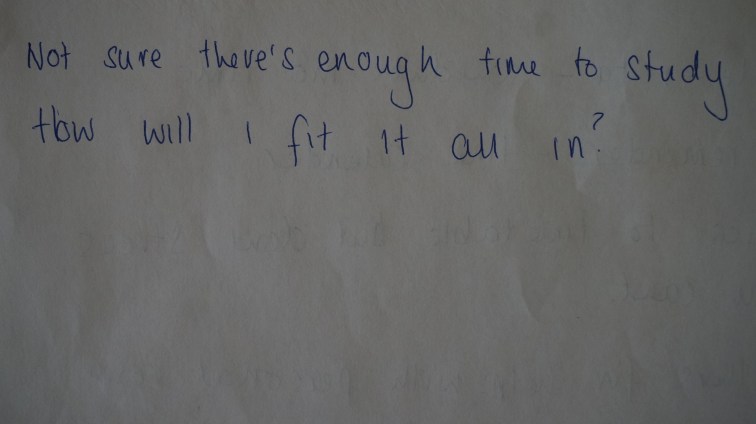 Not sure there's enough time to study
How will I fit it all in?